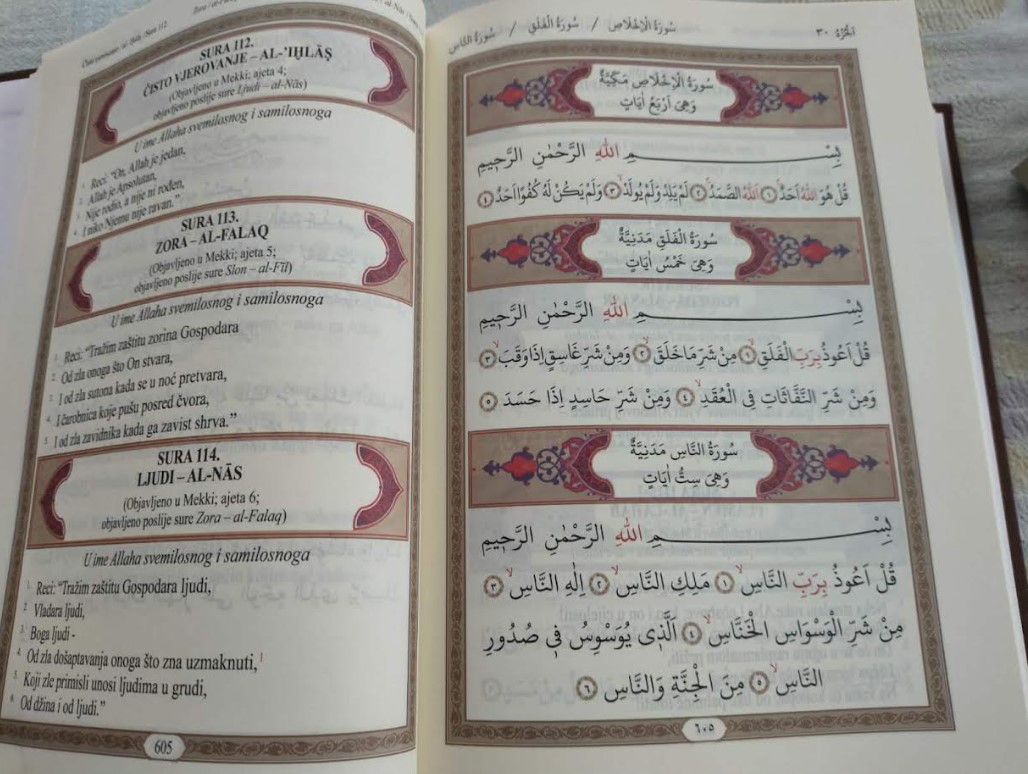 SURA 112.
ČISTO VJEROVANJE – AL-’IḪLĀṢ
(Objavljeno u Mekki; ajeta 4;
objavljeno poslije sure Ljudi – al-Nās)
U ime Allaha svemilosnog i samilosnoga
1. Reci: “On, Allah je jedan,
2. Allah je Apsolutan,
3. Nije rodio, a nije ni rođen,
4. I niko Njemu nije ravan.”
SURA 113.
ZORA – AL-FALAQ
(Objavljeno u Mekki; ajeta 5;
objavljeno poslije sure Slon – al-Fīl)
U ime Allaha svemilosnog i samilosnoga
1. Reci: “Tražim zaštitu zorina Gospodara
2. Od zla onoga što On stvara,
3. I od zla sutona kada se u noć pretvara,
4. I čarobnica koje pušu posred čvora,
5. I od zla zavidnika kada ga zavist shrva.”
SURA 114.
LJUDI – AL-NĀS
(Objavljeno u Mekki; ajeta 6;
objavljeno poslije sure Zora – al-Falaq)
U ime Allaha svemilosnog i samilosnoga
1. Reci: “Tražim zaštitu Gospodara ljudi,
2. Vladara ljudi,
3. Boga ljudi -
4. Od zla došaptavanja onoga što zna uzmaknuti,
5. Koji zle primisli unosi ljudima u grudi,
6. Od džina i od ljudi.”
605
اَلْجُزْءُ ٣٠ سُورَةُ الْاِخْلَاصِ / سُورَةُ الْفَلَقِ / سُورَةُ النَّاسِ
سُورَةُ الْاِخْلَاصِ مَكِّيَّةٌ
وَهِىَ اَرْبَعُ اٰيَاتٍ
بِسْمِ اللّٰهِ الرَّحْمٰنِ الرَّحٖيمِ
قُلْ هُوَ اللّٰهُ اَحَدٌ ۚ ١ اَللّٰهُ الصَّمَدُ ۚ ٢ لَمْ يَلِدْ وَلَمْ يُولَدْ ۙ ٣ وَلَمْ يَكُنْ لَهُ كُفُوًا اَحَدٌ ٤
سُورَةُ الْفَلَقِ مَدَنِيَّةٌ
وَهِىَ خَمْسُ اٰيَاتٍ
بِسْمِ اللّٰهِ الرَّحْمٰنِ الرَّحٖيمِ
قُلْ اَعُوذُ بِرَبِّ الْفَلَقِ ۙ ١ مِنْ شَرِّ مَا خَلَقَ ۙ ٢ وَمِنْ شَرِّ غَاسِقٍ اِذَا وَقَبَ ۙ ٣
وَمِنْ شَرِّ النَّفَّاثَاتِ فِى الْعُقَدِ ۙ ٤ وَمِنْ شَرِّ حَاسِدٍ اِذَا حَسَدَ ٥
سُورَةُ النَّاسِ مَدَنِيَّةٌ
وَهِىَ سِتُّ اٰيَاتٍ
بِسْمِ اللّٰهِ الرَّحْمٰنِ الرَّحٖيمِ
قُلْ اَعُوذُ بِرَبِّ النَّاسِ ۙ ١ مَلِكِ النَّاسِ ۙ ٢ اِلٰهِ النَّاسِ ۙ ٣
مِنْ شَرِّ الْوَسْوَاسِ الْخَنَّاسِ ۙ ٤ اَلَّذٖى يُوَسْوِسُ فٖى صُدُورِ
النَّاسِ ۙ ٥ مِنَ الْجِنَّةِ وَالنَّاسِ ٦
٦٠٥